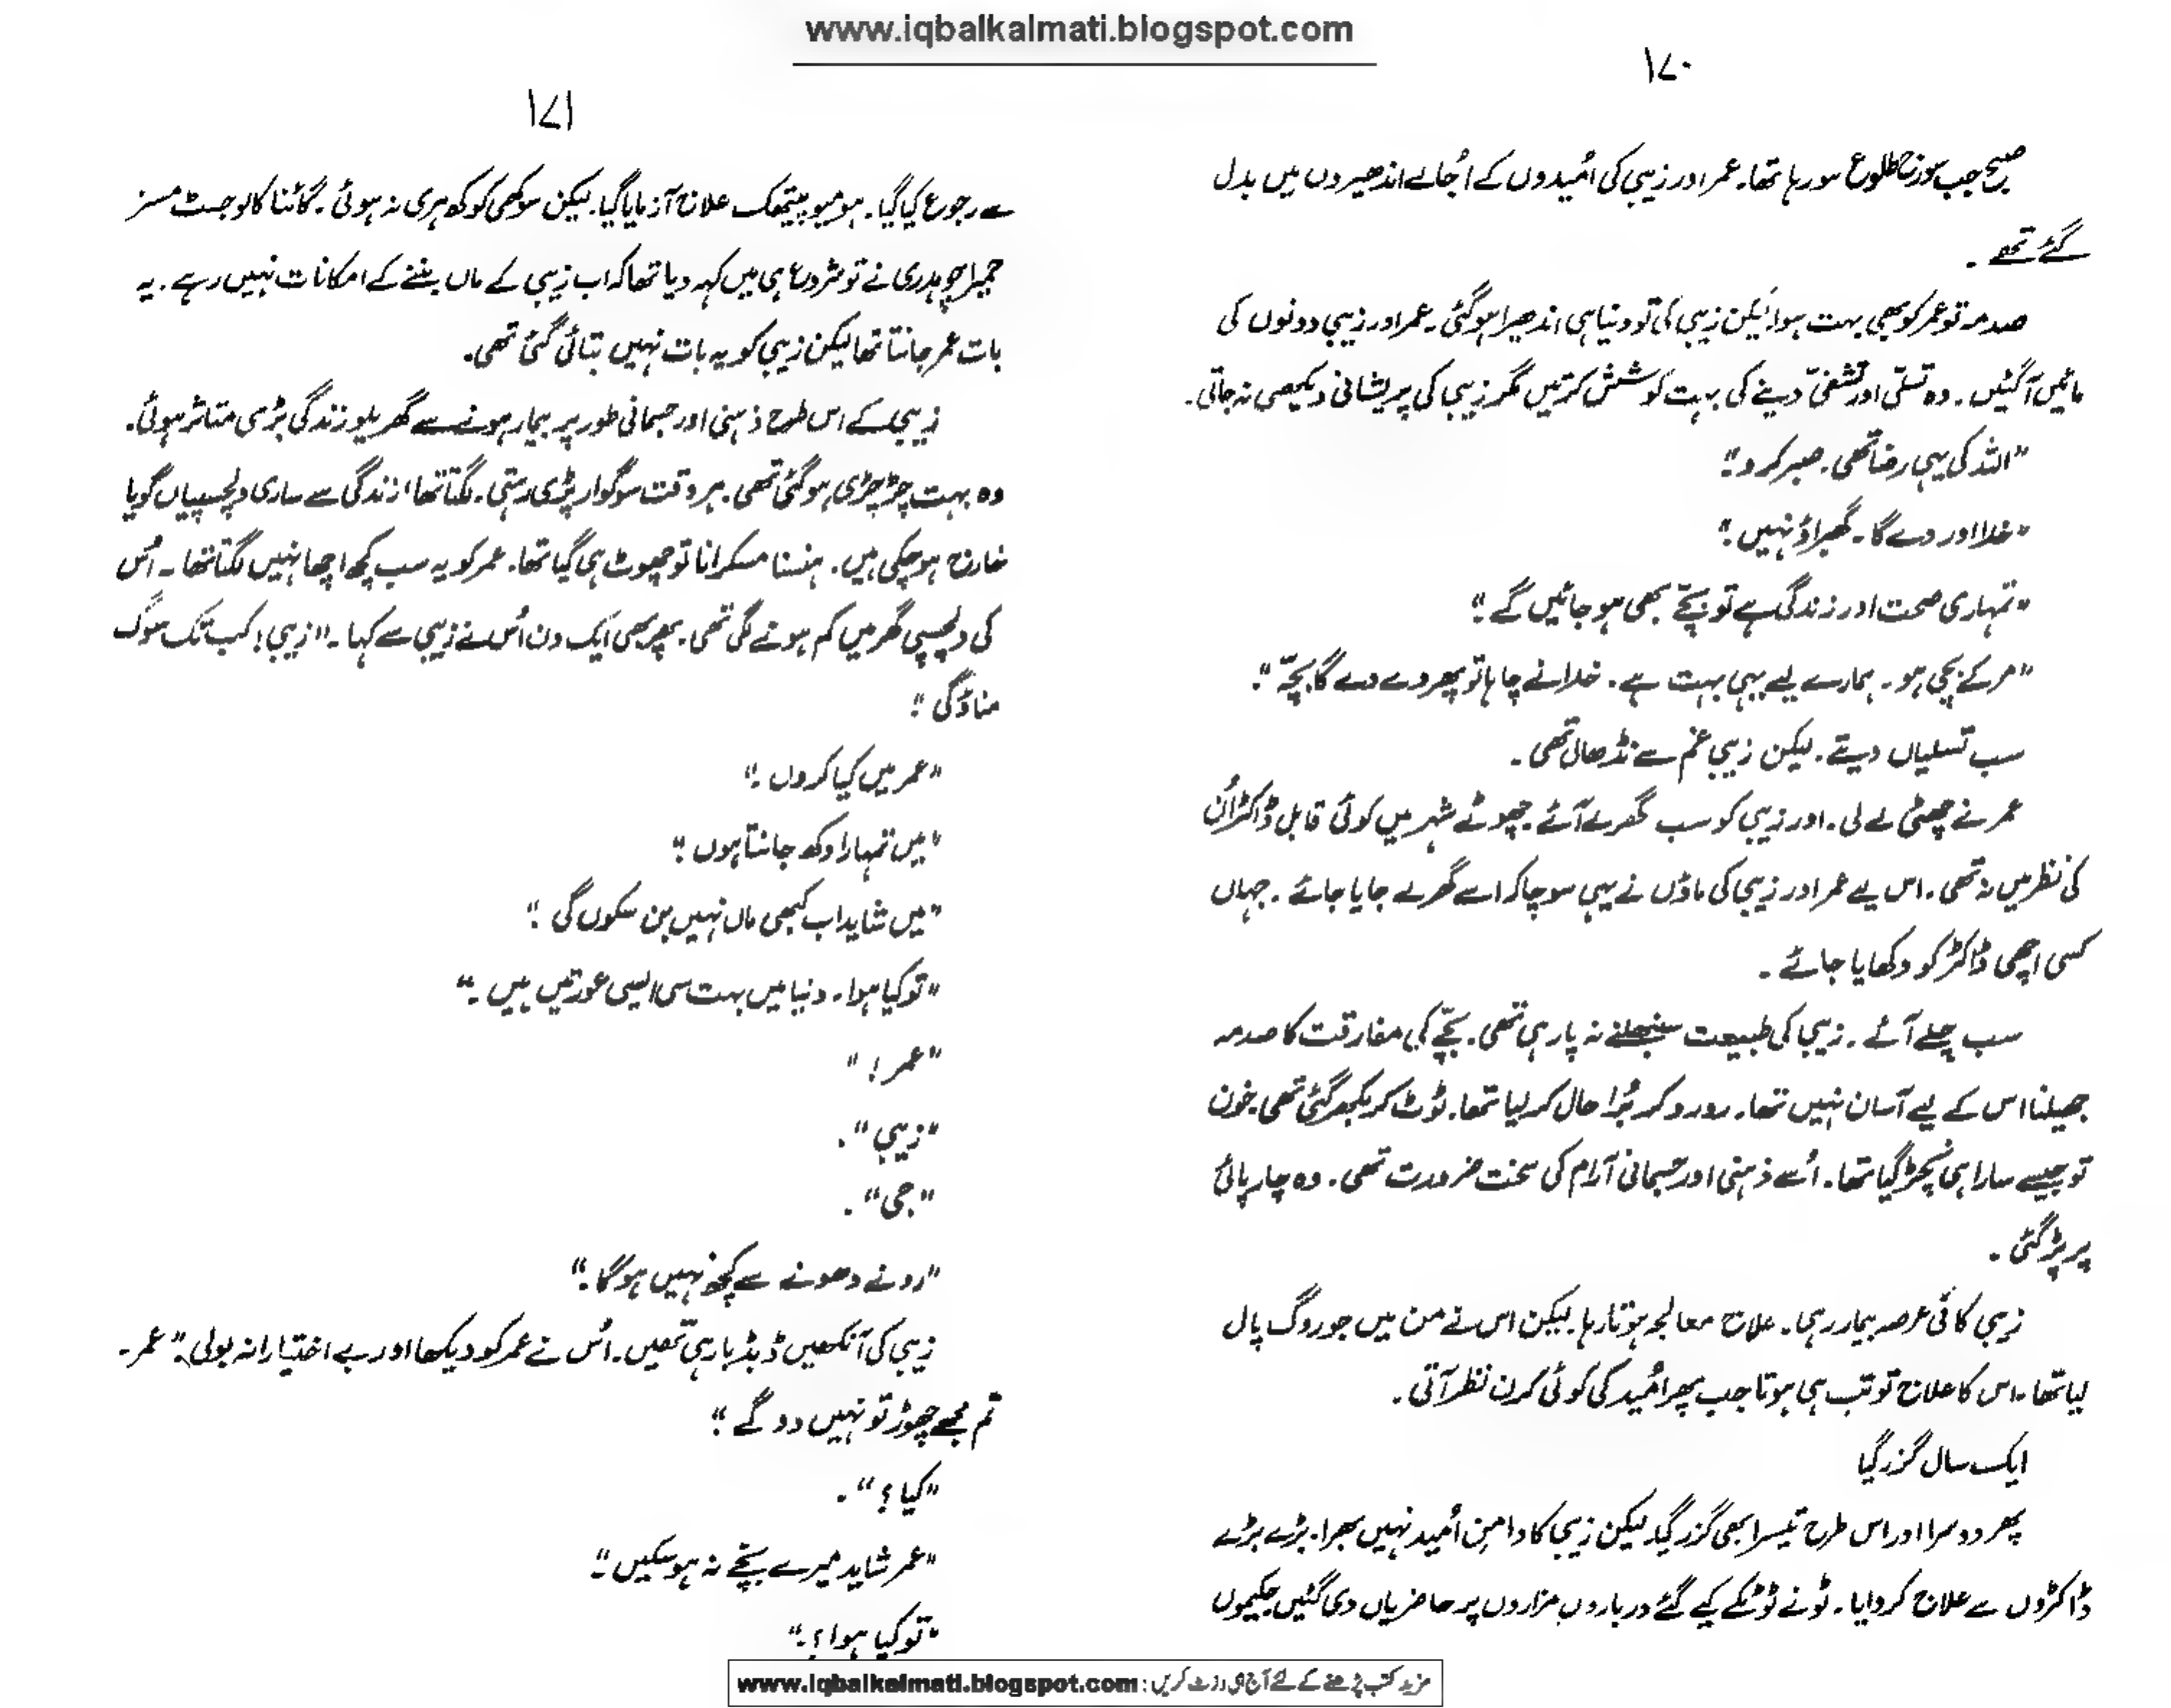 www.iqbalkalmati.blogspot.com
۱۷۰
صبح جب سورج طلوع ہو رہا تھا۔ عمر اور زیبی کی اُمیدوں کے اُجالے اندھیروں میں بدل
گئے تھے۔
صدمہ تو عمر کو بھی بہت ہوا لیکن زیبی کی تو دنیا ہی اندھیرا ہو گئی۔ عمر اور زیبی دونوں کی
مائیں آ گئیں۔ وہ تسلّی اور تشفیّ دینے کی بہت کوشش کرتیں مگر زیبی کی پریشانی دیکھی نہ جاتی۔
"اللہ کی یہی رضا تھی۔ صبر کرو۔"
"خدا اور دے گا۔ گھبراؤ نہیں۔"
"تمہاری صحت اور زندگی ہے تو بچّے بھی ہو جائیں گے۔"
"مر کے بچی ہو۔ ہمارے لیے یہی بہت ہے۔ خدا نے چاہا تو پھر دے دے گا بچّہ"۔
سب تسلیاں دیتے۔ لیکن زیبی غم سے نڈھال تھی۔
عمر نے چھٹی لے لی۔ اور زیبی کو سب گھر لے آئے۔ چھوٹے شہر میں کوئی قابل ڈاکٹر اُن
کی نظر میں نہ تھی۔ اس لیے عمر اور زیبی کی ماؤں نے یہی سوچا کہ اسے گھر لے جایا جائے۔ جہاں
کسی اچھی ڈاکٹر کو دکھایا جائے۔
سب چلے آئے۔ زیبی کی طبیعت سنبھلنے نہ پا رہی تھی۔ بچّے کی مفارقت کا صدمہ
جھیلنا اس کے لیے آسان نہیں تھا۔ رو رو کر بُرا حال کر لیا تھا۔ ٹوٹ کر بکھر گئی تھی۔ خون
تو جیسے سارا ہی نچڑ گیا تھا۔ اُسے ذہنی اور جسمانی آرام کی سخت ضرورت تھی۔ وہ چارپائی
پر پڑ گئی۔
زیبی کافی عرصہ بیمار رہی۔ علاج معالجہ ہوتا رہا۔ لیکن اس نے من میں جو روگ پال
لیا تھا۔ اس کا علاج تو تب ہی ہوتا جب پھر اُمید کی کوئی کرن نظر آتی۔
ایک سال گزر گیا
پھر دوسرا اور اس طرح تیسرا بھی گزر گیا۔ لیکن زیبی کا دامنِ اُمید نہیں بھرا۔ بڑے بڑے
ڈاکٹروں سے علاج کروایا۔ ٹونے ٹوٹکے کیے گئے درباروں مزاروں پر حاضریاں دی گئیں۔ حکیموں
۱۷۱
سے رجوع کیا گیا۔ ہومیوپیتھک علاج آزمایا گیا۔ لیکن سوکھی کوکھ ہری نہ ہوئی۔ گائنا کالوجسٹ مسز
حمیرا چوہدری نے تو شروع ہی میں کہہ دیا تھا کہ اب زیبی کے ماں بننے کے امکانات نہیں رہے۔ یہ
بات عمر جانتا تھا لیکن زیبی کو یہ بات نہیں بتائی گئی تھی۔
زیبی کے اس طرح ذہنی اور جسمانی طور پر بیمار ہونے سے گھریلو زندگی بڑی متاثر ہوئی۔
وہ بہت چڑچڑی ہو گئی تھی۔ ہر وقت سوگوار پڑی رہتی۔ لگتا تھا، زندگی سے ساری دلچسپیاں گویا
خارج ہو چکی ہیں۔ ہنسنا مسکرانا تو چھوٹ ہی گیا تھا۔ عمر کو یہ سب کچھ اچھا نہیں لگتا تھا۔ اُس
کی دلچسپی گھر میں کم ہونے لگی تھی۔ پھر بھی ایک دن اُس نے زیبی سے کہا۔ "زیبی! کب تک سوگ
مناؤ گی۔"
"عمر میں کیا کروں۔"
"میں تمہارا دکھ جانتا ہوں۔"
"میں شاید اب کبھی ماں نہیں بن سکوں گی۔"
"تو کیا ہوا۔ دنیا میں بہت سی ایسی عورتیں ہیں۔"
"عمر!"
"زیبی"۔
"جی"۔
"رونے دھونے سے کچھ نہیں ہو گا۔"
زیبی کی آنکھیں ڈبڈبا رہی تھیں۔ اُس نے عمر کو دیکھا اور بے اختیارانہ بولی۔ "عمر۔
تم مجھے چھوڑ تو نہیں دو گے۔"
"کیا؟"۔
"عمر شاید میرے بچّے نہ ہو سکیں۔"
"تو کیا ہوا؟۔"
مزید کتب پڑھنے کے لئے آج ہی وزٹ کریں: www.iqbalkalmati.blogspot.com